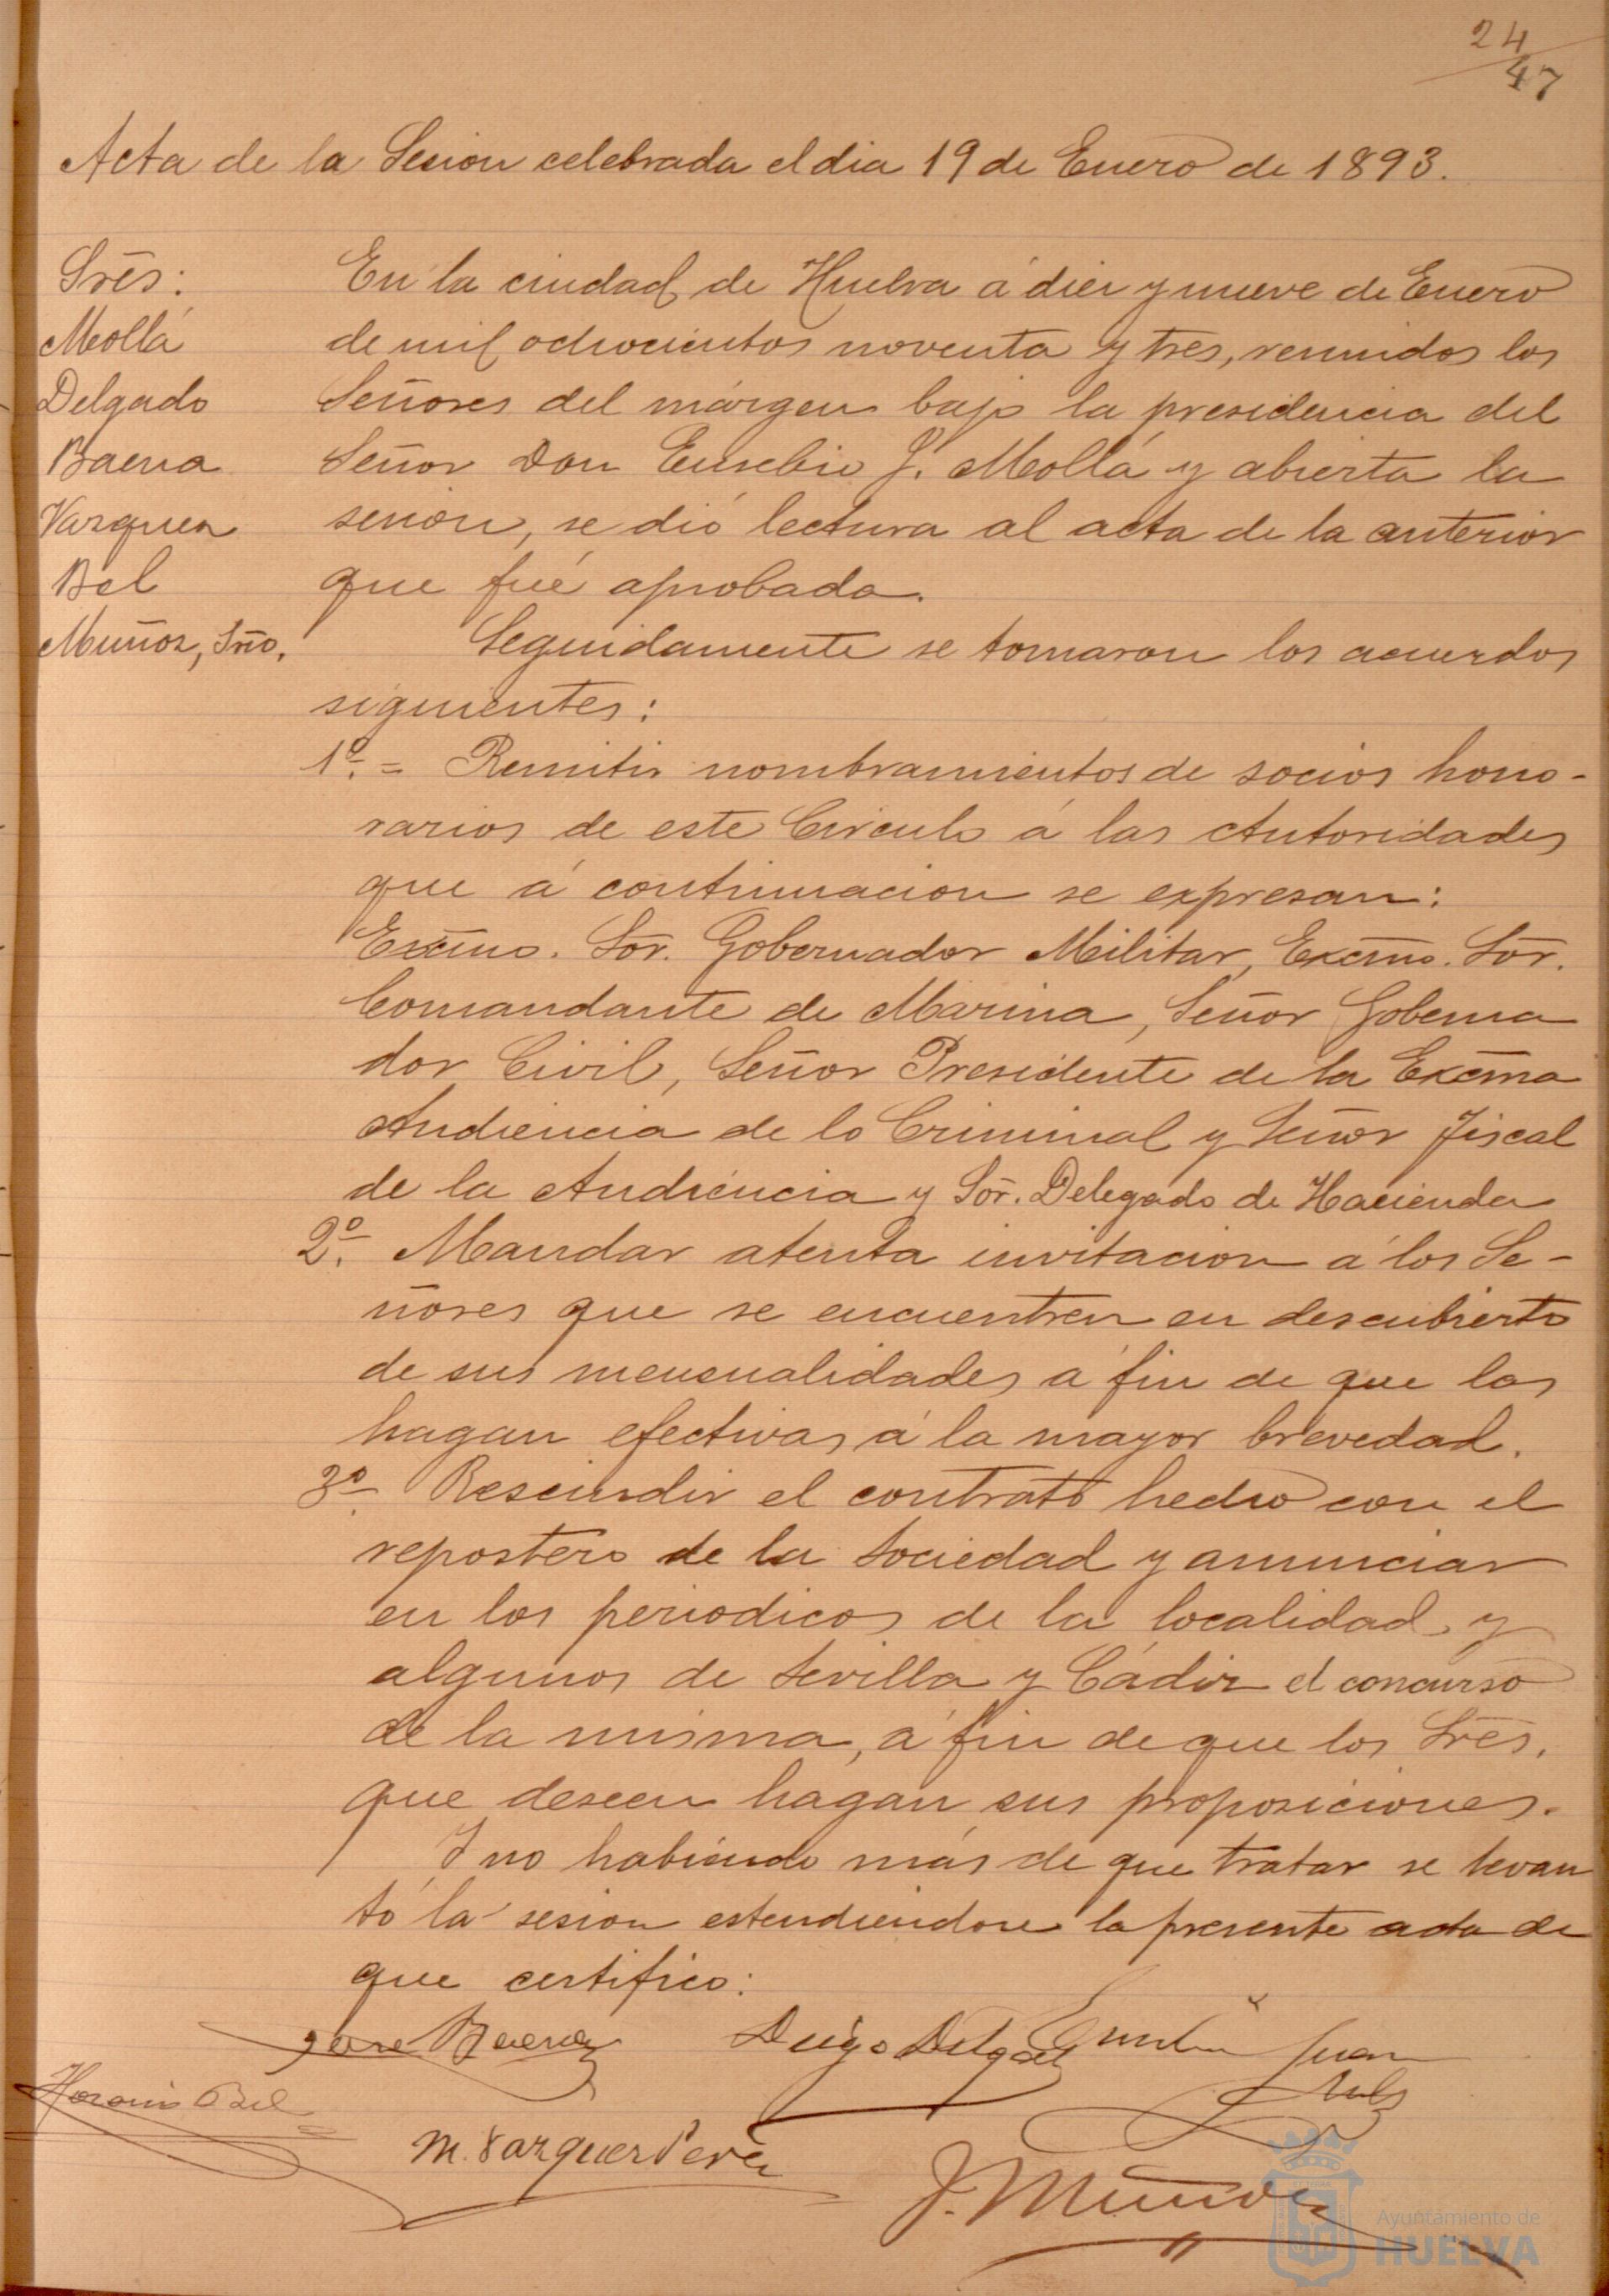 24
47
Acta de la Sesion celebrada el dia 19 de Enero de 1893.
Srēs:
Mollá
Delgado
Baena
Vazquez
Bel
Muñoz, Srio.
En la ciudad de Huelva á diez y nueve de Enero
de mil ochocientos noventa y tres, reunidos los
Señores del márgen bajo la presidencia del
Señor Don Eusebio J. Mollá y abierta la
sesion, se dió lectura al acta de la anterior
que fué aprobada.
Seguidamente se tomaron los acuerdos
siguientes:
1º. = Remitir nombramientos de socios hono-
rarios de este Circulo á las Autoridades
que á continuacion se expresan:
Excmo. Sor. Gobernador Militar, Excmo. Sor.
Comandante de Marina, Señor Goberna
dor Civil, Señor Presidente de la Excma
Audiencia de lo Criminal y Señor Fiscal
de la Audiencia y Sor. Delegado de Hacienda
2º. Mandar atenta invitacion á los Se-
ñores que se encuentren en descubierto
de sus mensualidades á fin de que las
hagan efectivas á la mayor brevedad.
3º. Rescindir el contrato hecho con el
repostero de la Sociedad y anunciar
en los periodicos de la localidad y
algunos de Sevilla y Cádiz el concurso
de la misma, á fin de que los Srēs.
que deseen hagan sus proposiciones.
Y no habiendo más de que tratar se levan
tó la sesion estendiendose la presente acta de
que certifico:
Jose Baena
Diego Delgado
Juan
Horacio Bel
M. Vazquez Perez
J. Muñoz
Ayuntamiento de
HUELVA